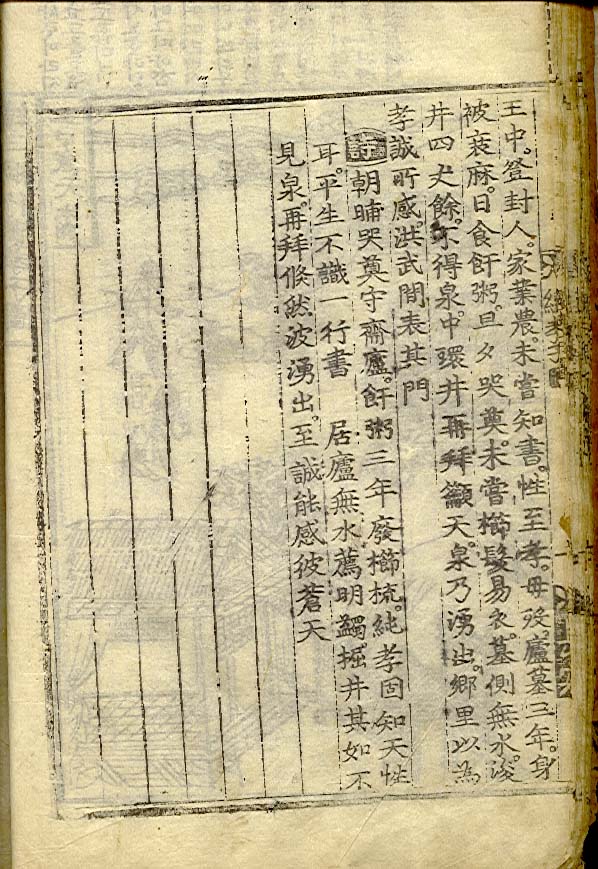 王中。登封人。家業農。未嘗知書。性至孝。母歿。廬墓三年。身
被衰麻。日食飦粥。旦夕哭奠。未嘗櫛髮易衣。墓側無水。浚
井四丈餘。不得泉。中環井再拜籲天。泉乃湧出。鄉里以為
孝誠所感。洪武間表其門
詩 朝晡哭奠守齋廬。飦粥三年廢櫛梳。純孝固知天性
耳。平生不識一行書 居廬無水薦明蠲。掘井其如不
見泉。再拜倏然波湧出。至誠能感彼蒼天